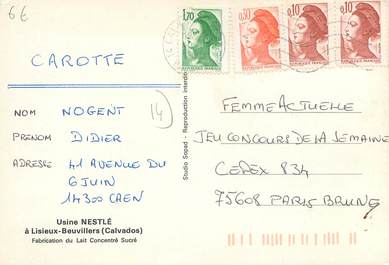 6€
1,70
0,30
0,10
0,10
CAROTTE
14
NOM NOGENT
PRENOM DIDIER
ADRESSE 41 AVENUE DU
6 JUIN
14300 CAEN
Usine NESTLÉ
à Lisieux-Beuvillers (Calvados)
Fabrication du Lait Concentré Sucré
Studio Sopad - Reproduction interdite
FEMME ACTUELLE
JEU CONCOURS DE LA SEMAINE
CEDEX 834
75608 PARIS BRUNE